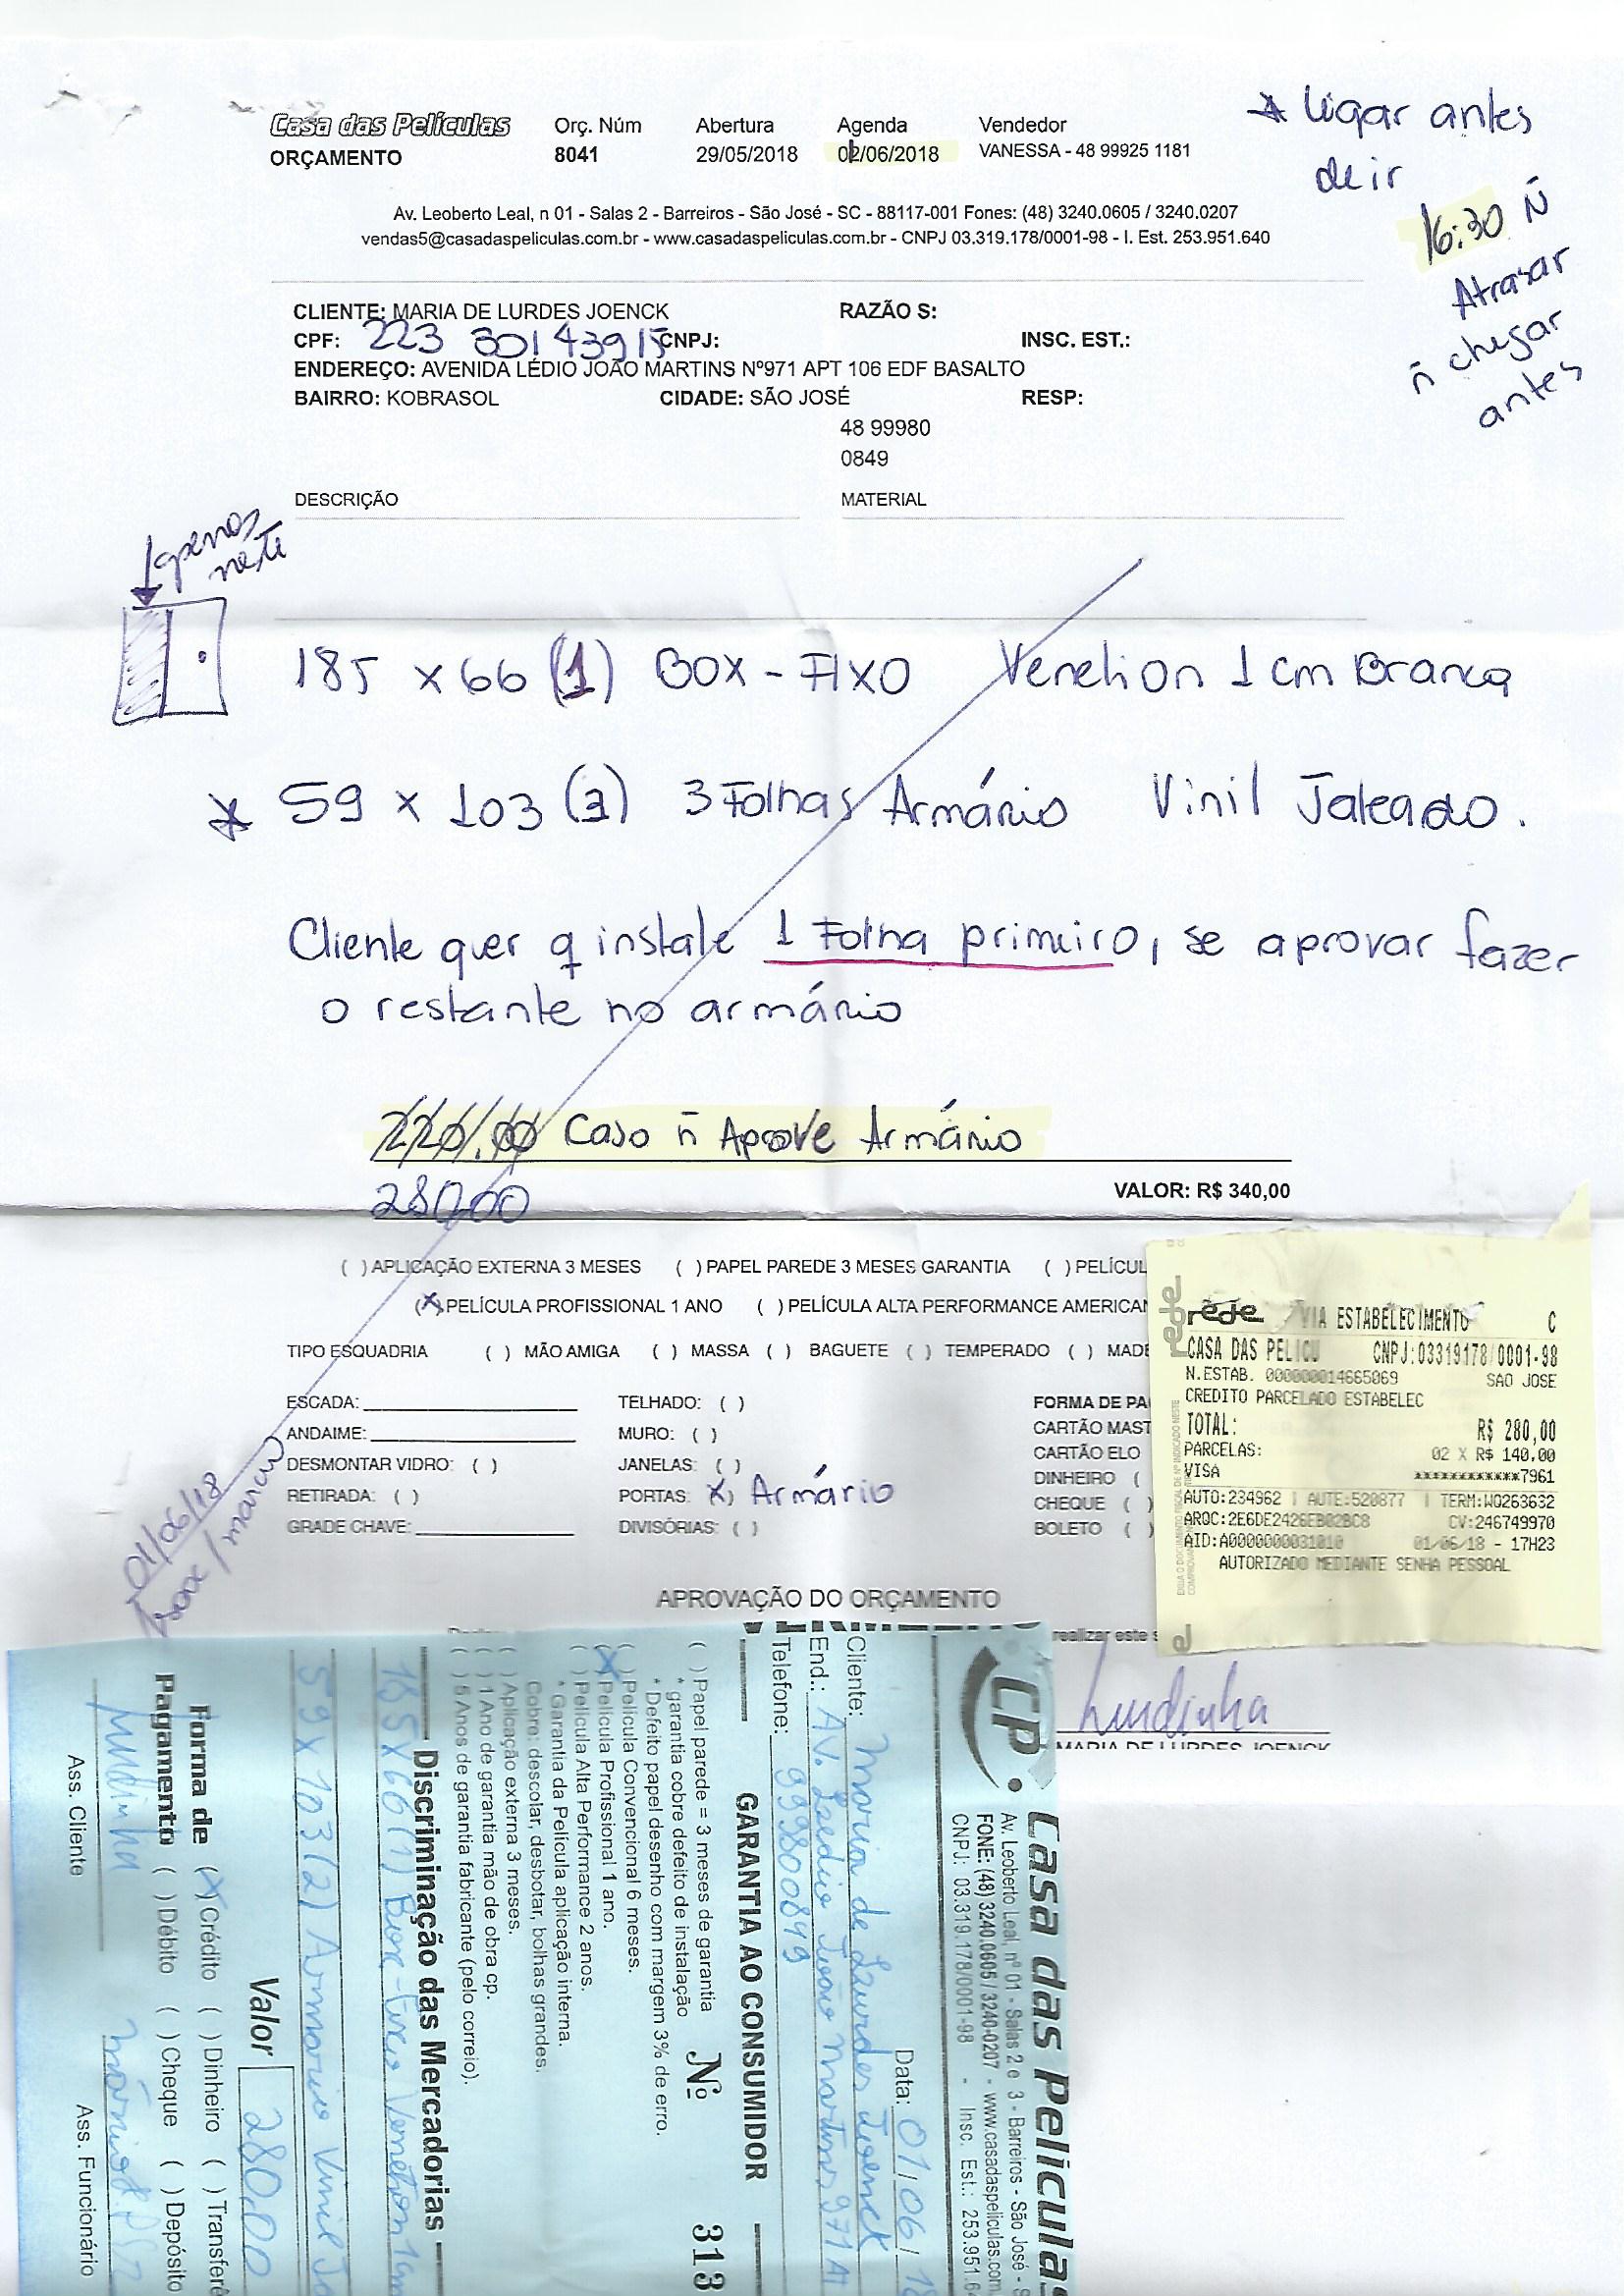 Casa das Películas
ORÇAMENTO
Orç. Núm
8041
Abertura
29/05/2018
Agenda
/06/2018
Vendedor
VANESSA - 48 99925 1181
* ligar antes
de ir
16:30 Ñ
Atrasar
ñ chegar
antes
Av. Leoberto Leal, n 01 - Salas 2 - Barreiros - São José - SC - 88117-001 Fones: (48) 3240.0605 / 3240.0207
vendas5@casadaspeliculas.com.br - www.casadaspeliculas.com.br - CNPJ 03.319.178/0001-98 - I. Est. 253.951.640
CLIENTE: MARIA DE LURDES JOENCK RAZÃO S:
CPF: 223 301 439 15 CNPJ: INSC. EST.:
ENDEREÇO: AVENIDA LÉDIO JOÃO MARTINS Nº971 APT 106 EDF BASALTO
BAIRRO: KOBRASOL CIDADE: SÃO JOSÉ RESP:
48 99980
0849
DESCRIÇÃO MATERIAL
apenas
neste
185 x 66 (1) BOX - FIXO Venetion 1 cm Branca
* 59 x 103 (3) 3 Folhas Armário Vinil Jateado.
Cliente quer q instale 1 Folha primeiro, se aprovar fazer
o restante no armário
220,00 Caso ñ Aprove Armário
280,00
VALOR: R$ 340,00
( ) APLICAÇÃO EXTERNA 3 MESES ( ) PAPEL PAREDE 3 MESES GARANTIA ( ) PELÍCUL
(X) PELÍCULA PROFISSIONAL 1 ANO ( ) PELÍCULA ALTA PERFORMANCE AMERICAN
TIPO ESQUADRIA ( ) MÃO AMIGA ( ) MASSA ( ) BAGUETE ( ) TEMPERADO ( ) MADE
ESCADA: TELHADO: ( ) FORMA DE PA
ANDAIME: MURO: ( ) CARTÃO MAST
DESMONTAR VIDRO: ( ) JANELAS: ( ) CARTÃO ELO
RETIRADA: ( ) PORTAS: (X) Armário DINHEIRO (
GRADE CHAVE: DIVISÓRIAS: ( ) CHEQUE ( )
BOLETO ( )
01/06/18
APROVAÇÃO DO ORÇAMENTO
realizar este s
Lurdinha
MARIA DE LURDES JOENCK
rede VIA ESTABELECIMENTO C
CASA DAS PELICU CNPJ:03319178/0001-98
N.ESTAB. 000000014665069 SAO JOSE
CREDITO PARCELADO ESTABELEC
TOTAL: R$ 280,00
PARCELAS: 02 X R$ 140,00
VISA ************7961
AUTO:234962 | AUTE:520877 | TERM:WO263632
ARQC:2E6DE2426EB02BC8 CV:246749970
AID:A0000000031010 01/06/18 - 17H23
AUTORIZADO MEDIANTE SENHA PESSOAL
CP. Casa das Películas
Av. Leoberto Leal, nº 01 - Salas 2 e 3 - Barreiros - São José - S
FONE: (48) 3240.0605 / 3240-0207 - www.casadaspeliculas.com
CNPJ: 03.319.178/0001-98 - Insc. Est.: 253.951.6
Data: 01/06/18
Cliente: Maria de Lourdes Joenck
End.: AV. Laédio João Martins 971 A
Telefone: 999800849
GARANTIA AO CONSUMIDOR
Nº 313
( ) Papel parede = 3 meses de garantia
* garantia cobre defeito de instalação
* Defeito papel desenho com margem 3% de erro.
( ) Película Convencional 6 meses.
(X) Película Profissional 1 ano.
( ) Película Alta Performance 2 anos.
* Garantia da Película aplicação interna.
Cobre: descolar, desbotar, bolhas grandes.
( ) Aplicação externa 3 meses.
( ) 1 Ano de garantia mão de obra cp.
( ) 5 Anos de garantia fabricante (pelo correio).
Discriminação das Mercadorias
185 x 66 (1) Box - Fixo Venetion 1cm
59 x 103 (2) Armario Vinil Ja
Valor 280,00
Forma de Pagamento (X) Crédito ( ) Dinheiro ( ) Transferê
( ) Débito ( ) Cheque ( ) Depósito
Lurdinha
Ass. Cliente Ass. Funcionário